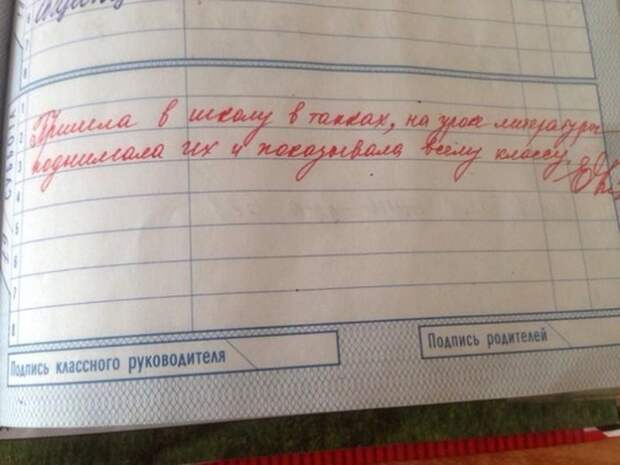 8
СУББОТА
1
2
3
4
5
6
7
8
Пришла в школу в тапках, на урок литературы
поднимала их и показывала всему классу.
Подпись классного руководителя
Подпись родителей